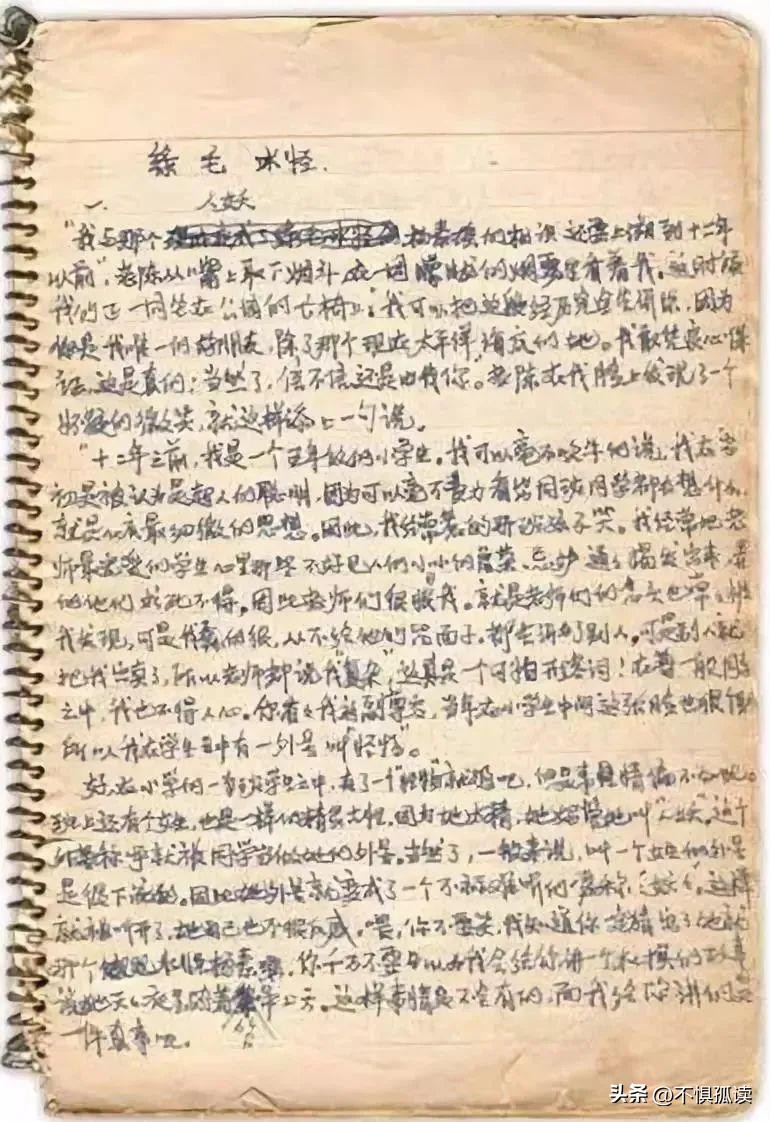 绿毛水怪.
一、 人妖
"我与那个杨素瑶的相识还要上溯到十二年
以前",老陈从嘴上取下烟斗,在一团朦胧的烟雾里看着我。这时候
我们正一同坐在公园的长椅上:我可以把这段经历完全告诉你,因为
你是我唯一的好朋友,除了那个现在太平洋海底的她。我敢凭良心保
证,这是真的;当然了,信不信还是由你"。老陈在我脸上发现了一个
怀疑的微笑,就这样添上一句说。
"十二年之前,我是一个五年级的小学生。我可以毫不吹牛的说,我在当
初是被认为是超人的聪明,因为可以毫不费力看出同班同学都在想什么,
就是心底最细微的思想。因此,我经常的班孩子笑。我经常地老
师最宠爱的学生心里那些不好见人们小小的虚荣、忌妒通通揭发出来,弄
的他们求死不得。因此老师们很恨我。就是老师们的念头也常常被
我发现,可是我蠢的很,从不给他们留面子。都告诉了别人。可是别人就
把我出卖了,所以老师都说我"复杂",这真是一个可怕形容词!在一般同学
之中,我也不得人心。你看看我这副尊容,当年在小学生中间这张脸也很
所以我在学生中有一外号叫"怪物"。
好,在小学的一班学生之中,有了一个"怪物"就够吧,但是事情偏不如此。
班上还有个女生,也是一样的精灵古怪。因为她太精,她妈管她叫"人妖"。这个
称呼就被同学当做她的外号。当然了,一般来说,叫一个女生的外号
是很下流的。因此她外号就变成了一个不难听的昵称"妖妖"。这样
就叫开了,她自己也不很反感。喂,你不要笑,我知道你一定猜出了她就
那个水怪杨素瑶,你千万不要以为我会给你讲一个杜撰的故事
说她天天夜里骑着上天。这样事情是不会有的,而我给你讲的是
一件真事呢。
头条 @不惧孤读